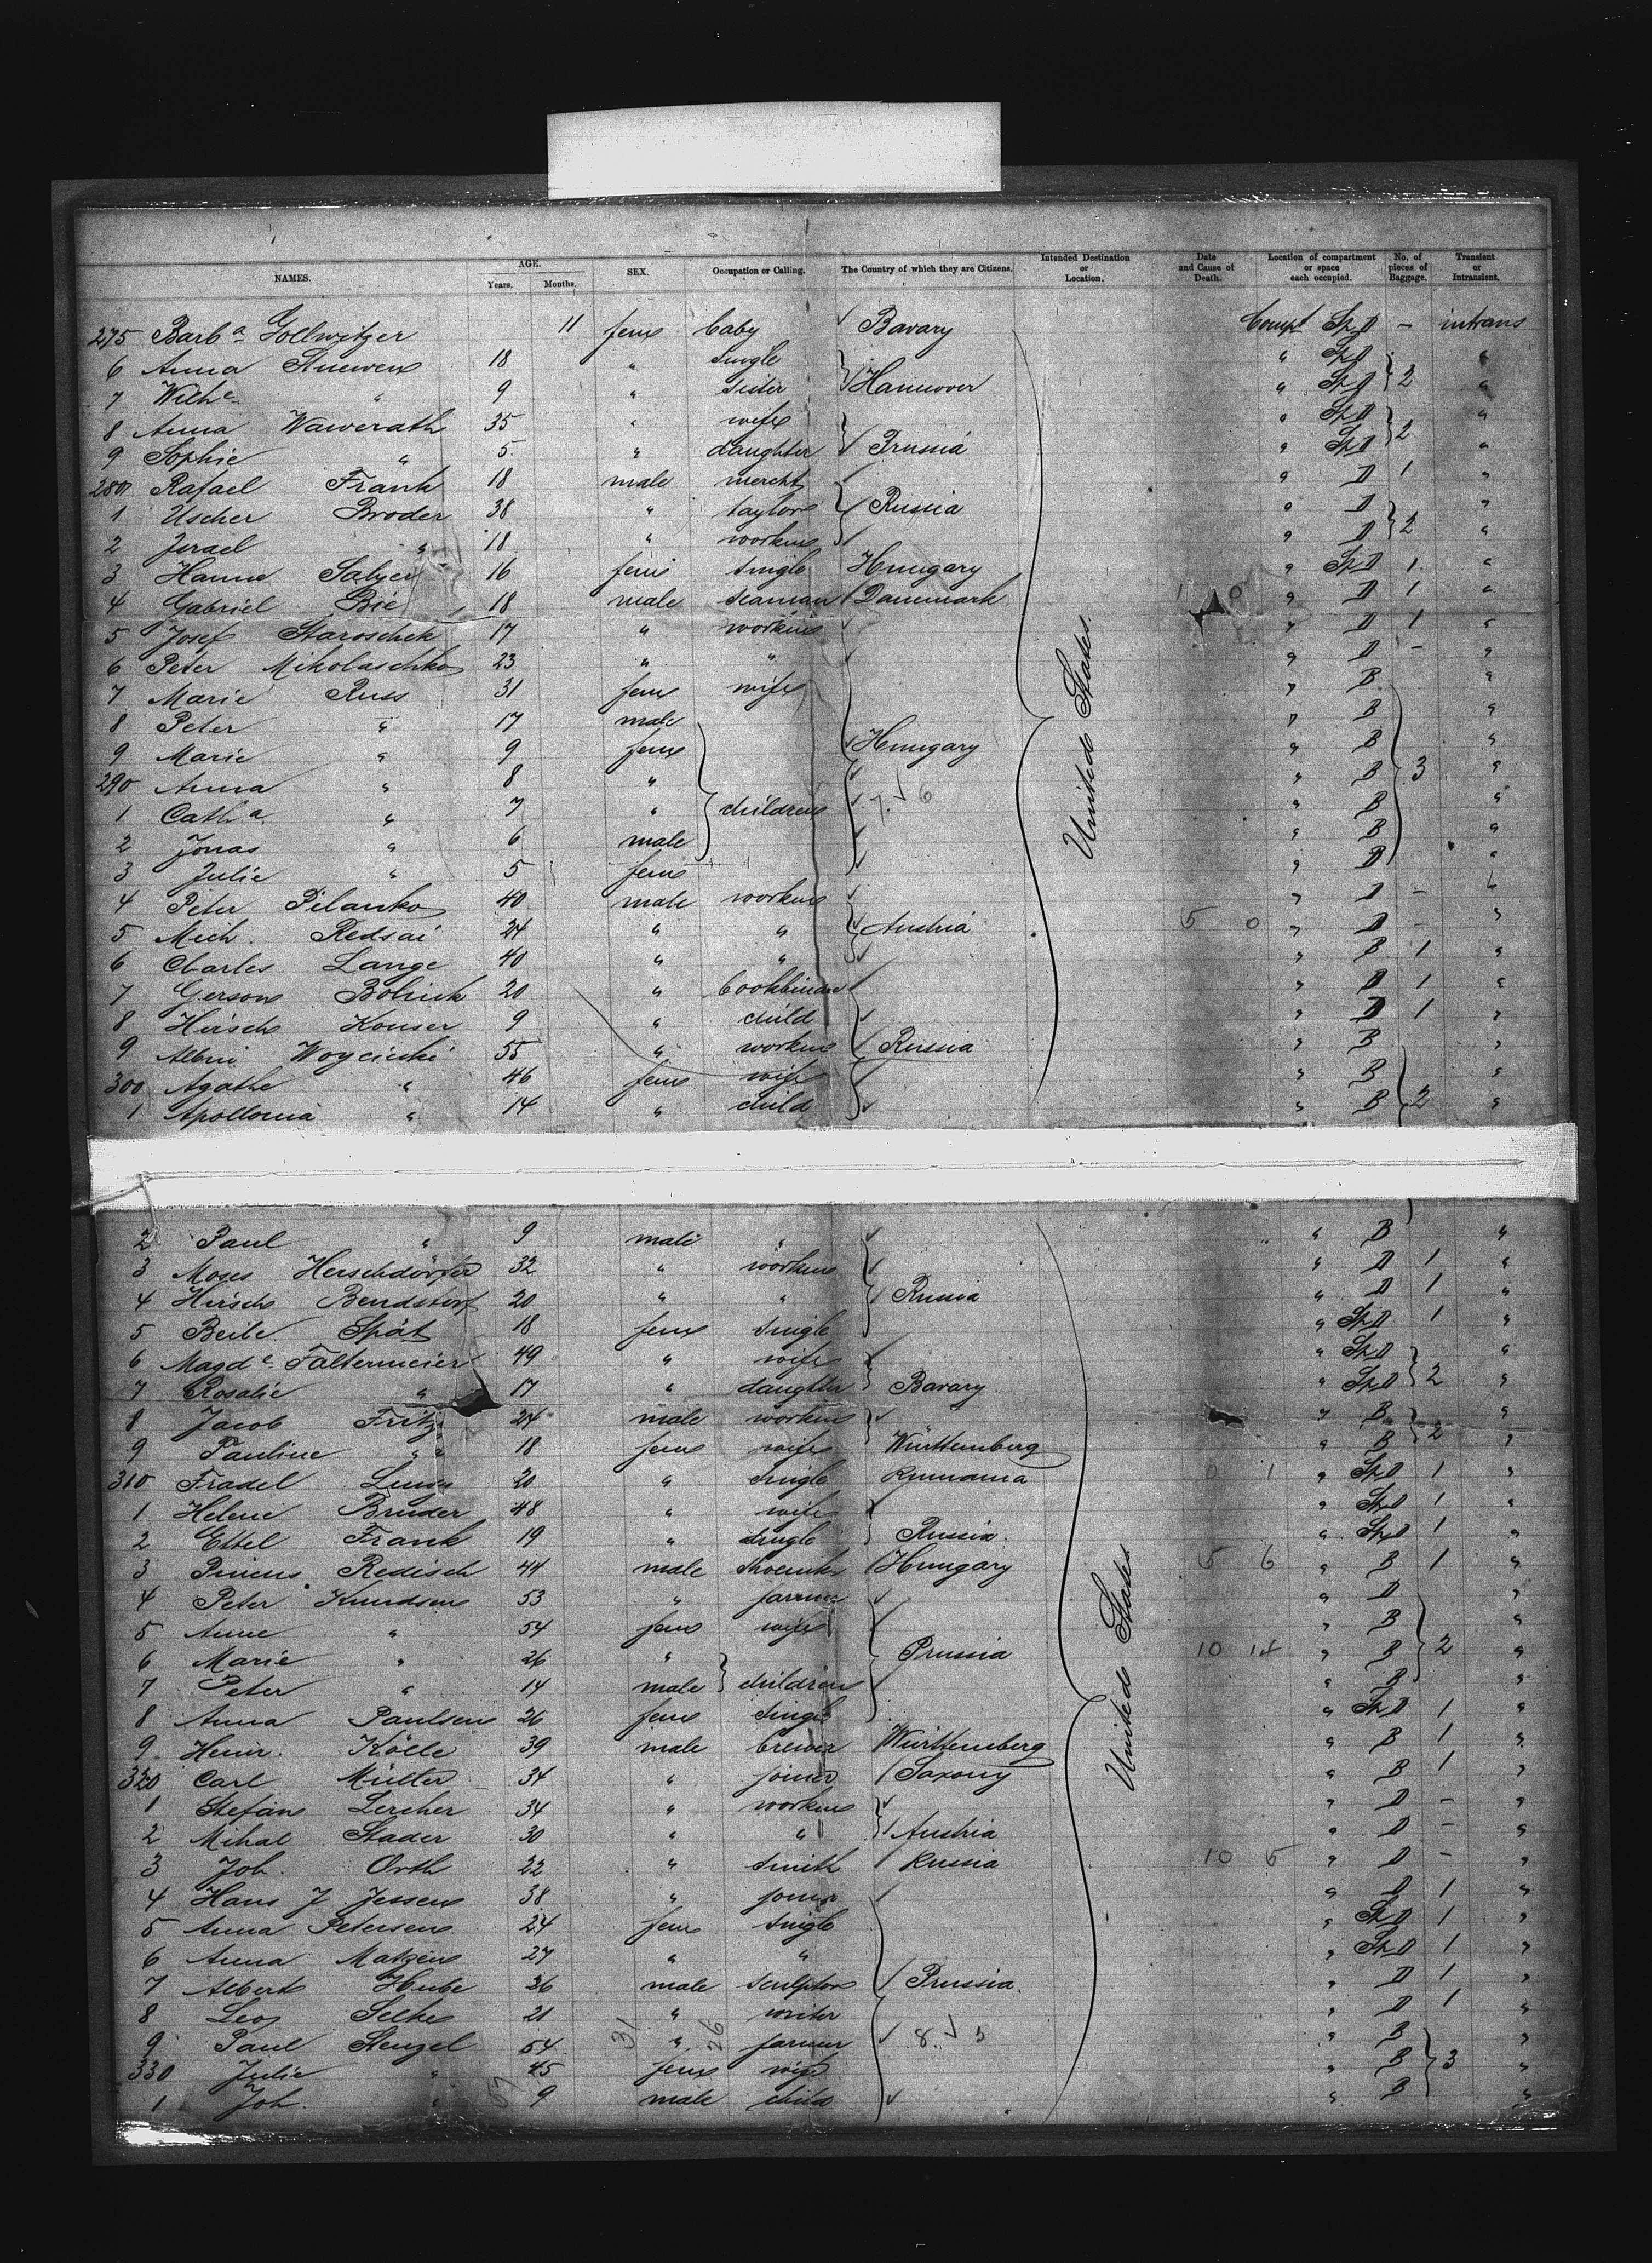 NAMES. AGE. Years. Months. SEX. Occupation or Calling. The Country of which they are Citizens. Intended Destination or Location. Date and Cause of Death. Location of compartment or space each occupied. No. of pieces of Baggage. Transient or Intransient.
275 Barba Gollwitzer 11 fem baby Bavary Compt Sp D – intrans
6 Anna Stuewen 18 " single " Sp D "
7 Wilhe " 9 " sister Hannover " Sp D 2 "
8 Anna Wawerath 35 " wife " Sp D "
9 Sophie " 5 " daughter Prussia " Sp D 2 "
280 Rafael Frank 18 male mercht " D 1 "
1 Uscher Broder 38 " taylor Russia " D "
2 Israel " 18 " workm " D 2 "
3 Hanne Salzer 16 fem single Hungary " Sp D 1 "
4 Gabriel Bie 18 male seaman Danemark 1 0 " D 1 "
5 Josef Staroschek 17 " workm " D 1 "
6 Peter Mikolaschko 23 " " " D – "
7 Marie Russ 31 fem wife " B "
8 Peter " 17 male " B "
9 Marie " 9 fem Hungary " B "
290 Anna " 8 " " B 3 "
1 Catha " 7 " children 7 6 " B "
2 Jonas " 6 male " B "
3 Julie " 5 fem " B "
4 Peter Pilanko 40 male workm " D – "
5 Mich. Redsai 24 " " Austria 5 0 " D – "
6 Charles Lange 40 " " " B 1 "
7 Gerson Bolnick 20 " bookbinder " D 1 "
8 Hirsch Konser 9 " child " D 1 "
9 Albin Woycinski 55 " workm Russia " B "
300 Agathe " 46 fem wife " B "
1 Apollonia " 14 " child " B 2 "
2 Paul " 9 male " " B "
3 Moses Herschdörfer 32 " workm " D 1 "
4 Hirsch Bendstorf 20 " " Russia " D 1 "
5 Beile Spät 18 fem single " Sp D 1 "
6 Magde Faltermeier 49 " wife " Sp D "
7 Rosalie " 17 " daughter Bavary " Sp D 2 "
8 Jacob Fritz 24 male workm " B "
9 Pauline " 18 fem wife Württemberg " B 2 "
310 Fradel 20 " single Rumania 0 1 " Sp D 1 "
1 Helene Bruder 48 " wife " Sp D 1 "
2 Ettel Frank 19 " single Russia. " Sp D 1 "
3 Pincus Redisch 44 male shoemker Hungary 5 6 " B 1 "
4 Peter Knudsen 53 " farmer " D "
5 Anne " 54 fem wife " B "
6 Marie " 26 " Prussia 10 14 " B 2 "
7 Peter " 14 male children " B "
8 Anna Paulsen 26 fem single " Sp D 1 "
9 Heinr. Kölle 39 male brewer Württemberg " B 1 "
320 Carl Müller 34 " joiner Saxony " B 1 "
1 Stefan Lercher 34 " workm " D – "
2 Mihal Stader 30 " " Austria " D – "
3 Joh. Orth 22 " smith Russia 10 5 " D – "
4 Hans J Jessen 38 " joiner " D 1 "
5 Anna Petersen 24 fem single " Sp D 1 "
6 Anna Matzen 27 " " " Sp D 1 "
7 Albert Hube 26 male sculptor Prussia. " D 1 "
8 Leo Selke 21 " writer " D 1 "
9 Paul Stenzel 54 31 " 26 farmer 8 5 " B "
330 Julie " 45 fem wife " B 3 "
1 Joh. " 57 9 male child " B "
United States.
United States